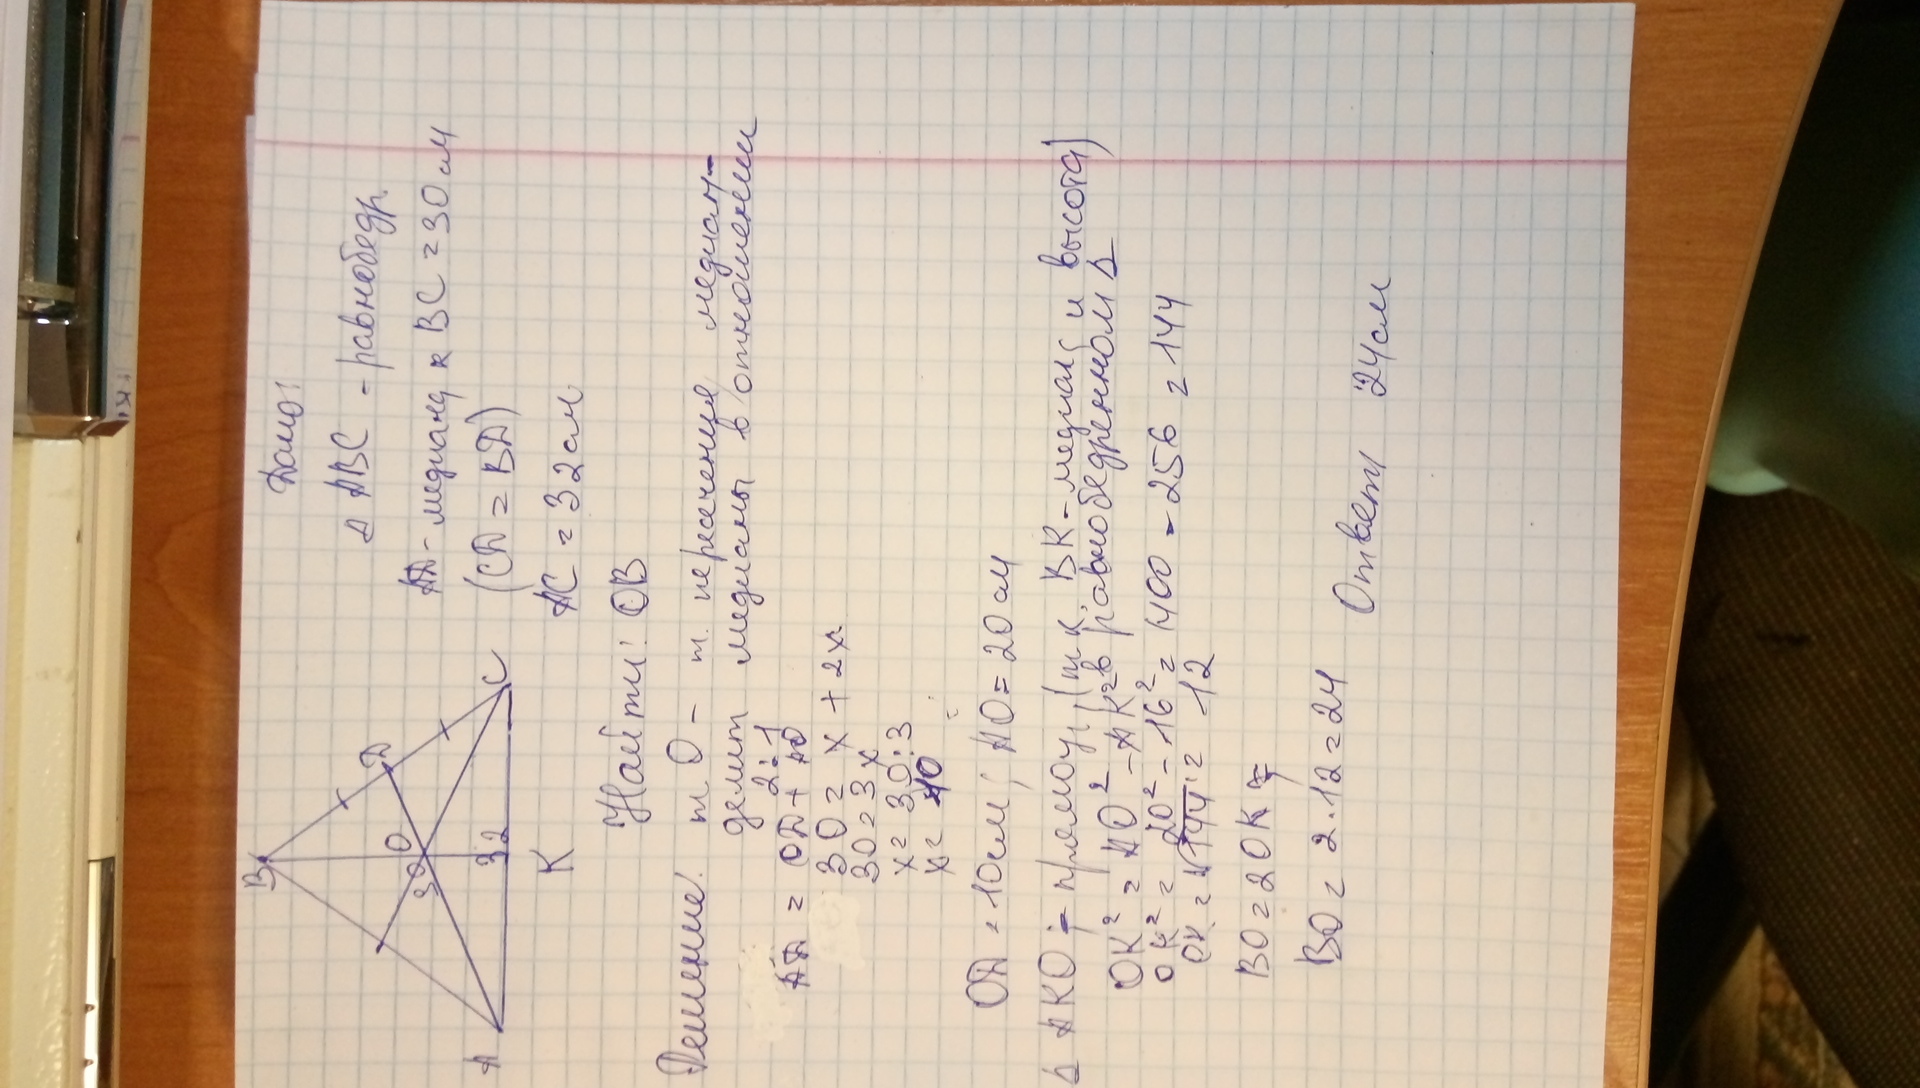 Дано:
Δ ABC - равнобедр
АД - медиана к BC = 30 см
(СД = ВД)
AC = 32 см
B
Д
O
30
A
32
C
K
Найти: ОВ
Решение: т. О - т. пересечения медиан -
делит медианы в отношении
2:1
АД = ОД + АО
30 = x + 2x
30 = 3x
x = 30:3
x = 10
ОД = 10см; АО = 20 см
Δ АКО - прямоуг (т.к. ВК - медиан и высота)
в равнобедренном Δ
OK² = AO² - AK²
OK² = 20² - 16² = 400 - 256 = 144
OK = √144 = 12
BO = 2OK =
BO = 2·12 = 24
Ответ 24см